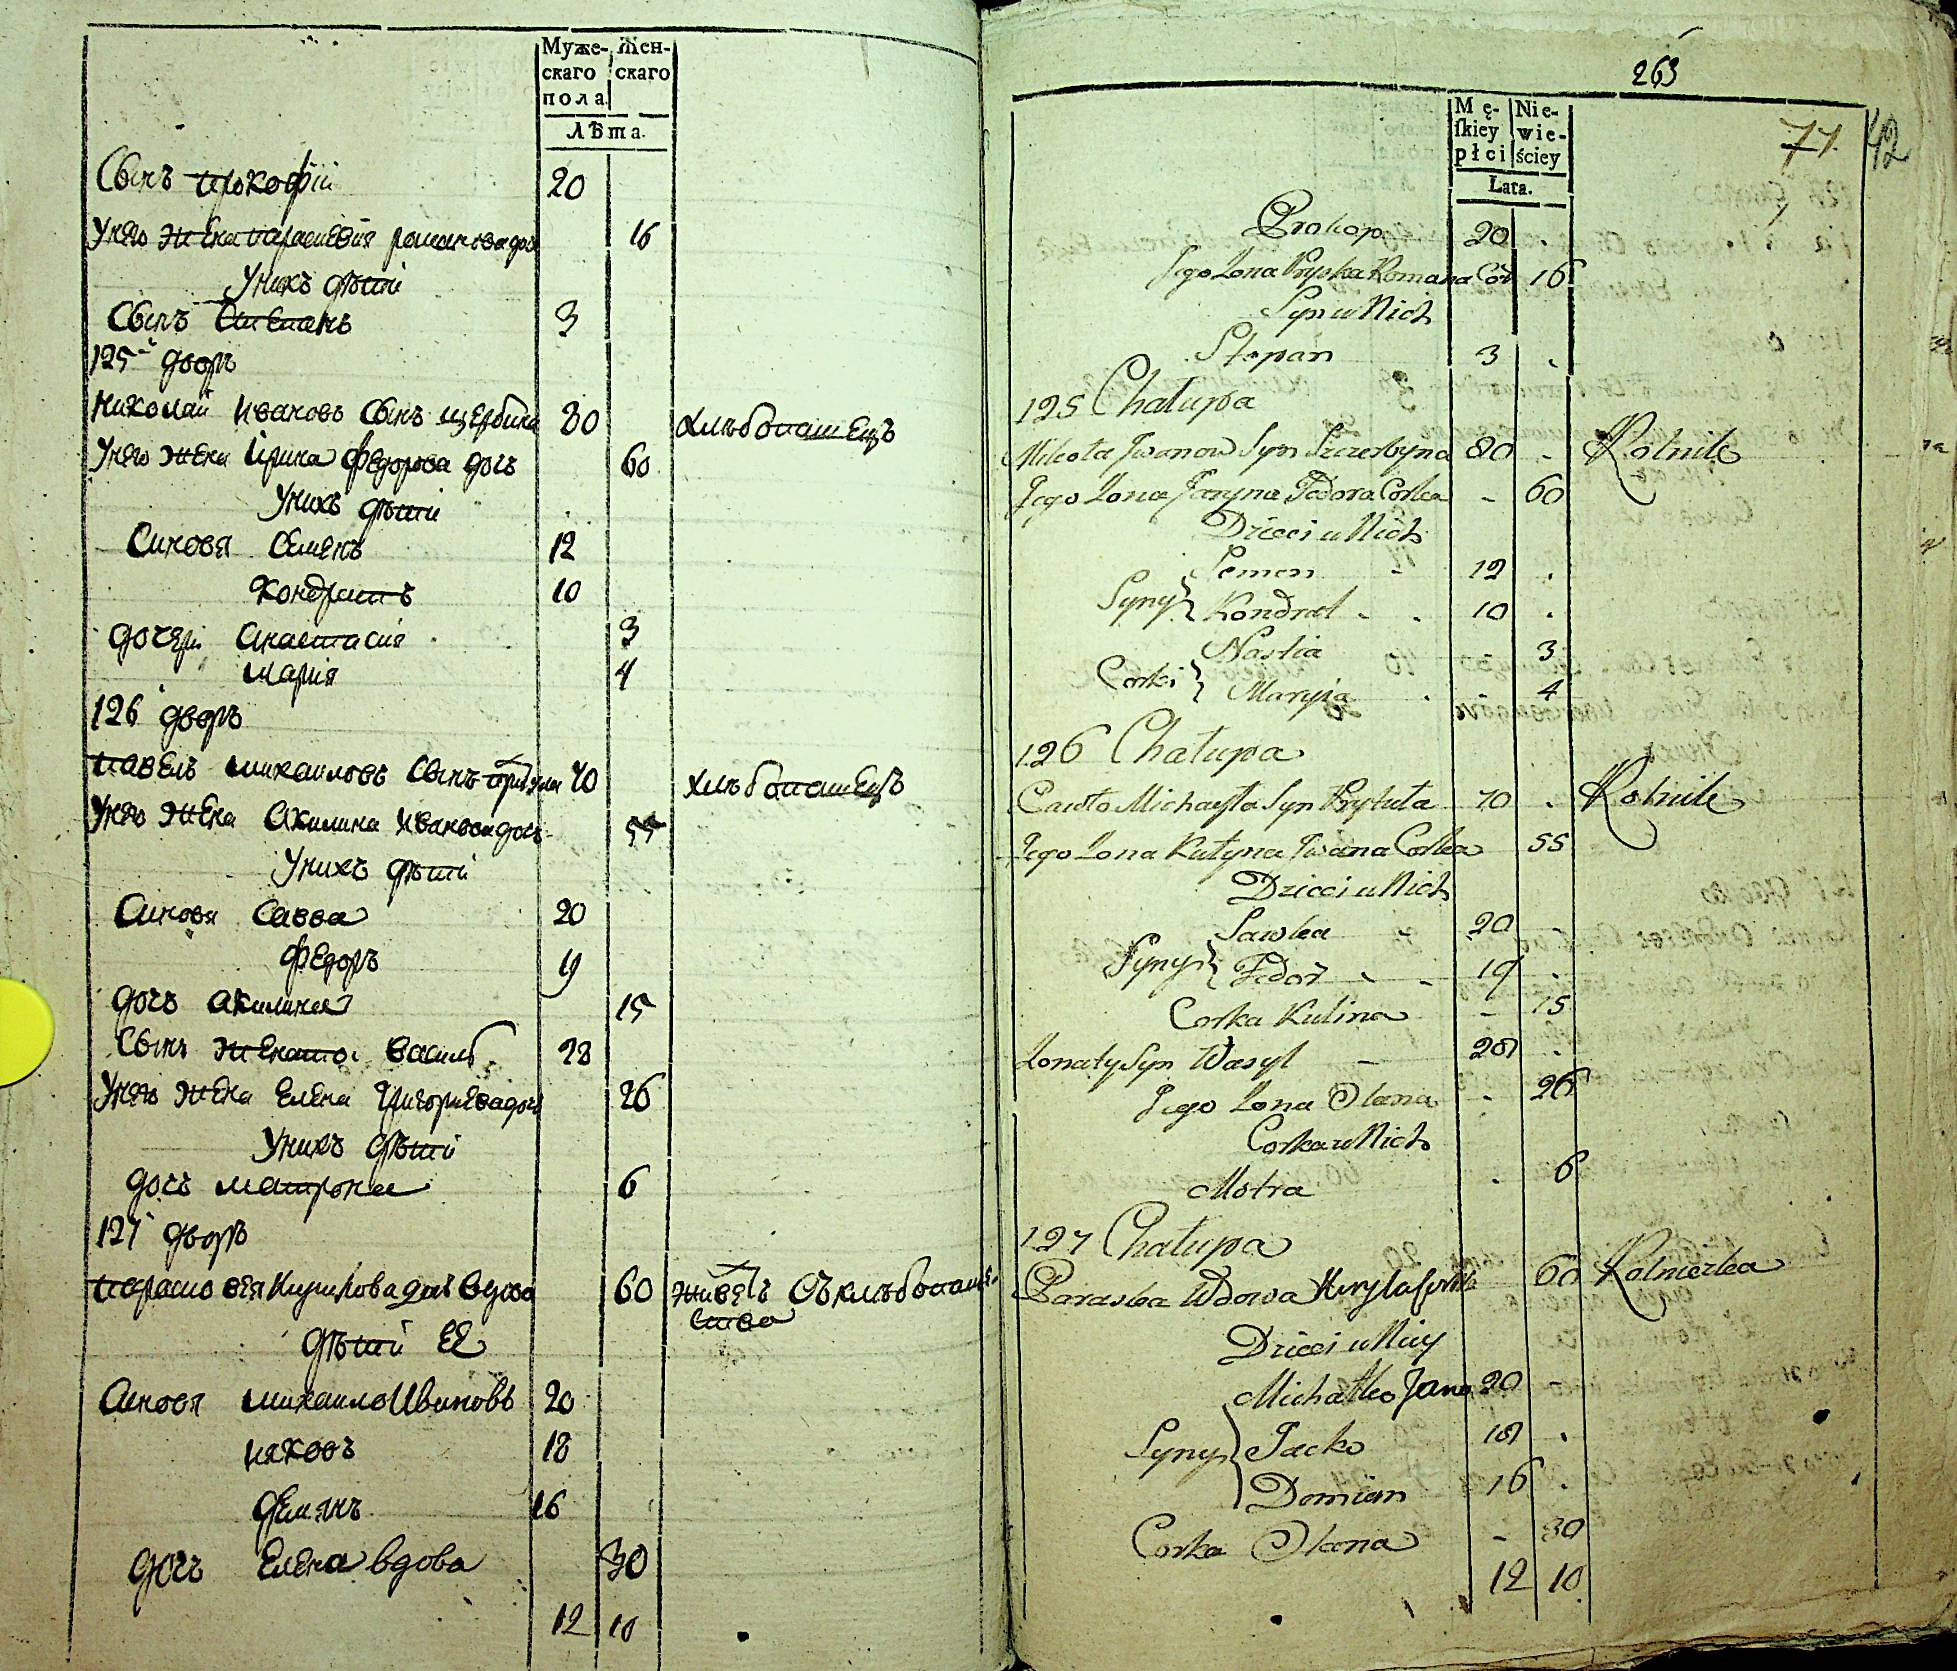 Муже- Жен-
скаго скаго
пола
Лѣта.
Сынъ прокофій 20
Унего жена параскевія романова дочь 16
Унихъ дѣти
Сынъ Степанъ 3
125й дворъ
Николай Ивановъ Сынъ щербина 80 хлѣбопашецъ
Унего жена Ирина Федорова дочь 60
Унихъ дѣти
Синовя Семенъ 12
Кондратъ 10
дочери Анастасія 3
Марія 4
126 дворъ
павелъ михаиловъ Сынъ 70 хлѣбопашецъ
Унего жена Акилина Иванова дочь 55
Унихъ дѣти
Синовя Савва 20
Федоръ 19
дочь Акилина 15
Сынъ женатой Василь 28
Унего жена Елена Григориева дочь 26
Унихъ дѣти
дочь матрона 6
127 дворъ
параскевія Кирилова дочь вдова 60 живетъ Съ хлѣбопаше-
ства
дѣти ЕЕ
Синовя михаило Ивановъ 20
Яковъ 18
Демянъ 16
дочь Елена вдова 30
12 10
263
71.
42
Mę- Nie-
ſkiey wie-
płci ściey
Lata.
Prokop 20 .
Jego Zona Pryska Romana Cór 16
Syn u Nich
Stepan 3 .
125 Chałupa
Mikoła Iwanow Syn Szczerbyna 80 - Rolnik
Jego Zona Jaryna Fedora Corka - 60
Dzieci u Nich
Semen - 12 .
Syny Kondrat - . 10 .
Nastia - 3
Corki Maryia . - 4
126 Chałupa
Pawło Michayła Syn Prytuła 70 . Rolnik
Jego Zona Kulyna Iwana Corka 55
Dzieci u Nich
Sawka 20 .
Syny Fedor - - 19 .
Corka Kulina - 15
Zonaty Syn Wasyl - 28 .
Jego Zona Olena - 26
Corka u Nich
Motra . 6
127 Chałupa
Paraska Wdowa Kiryła Corka 60 Rolniczka
Dzieci u Niey
Michałko Jana 20 -
Syny Jacko 18 .
Domian 16 .
Corka Olena - 30
12 10